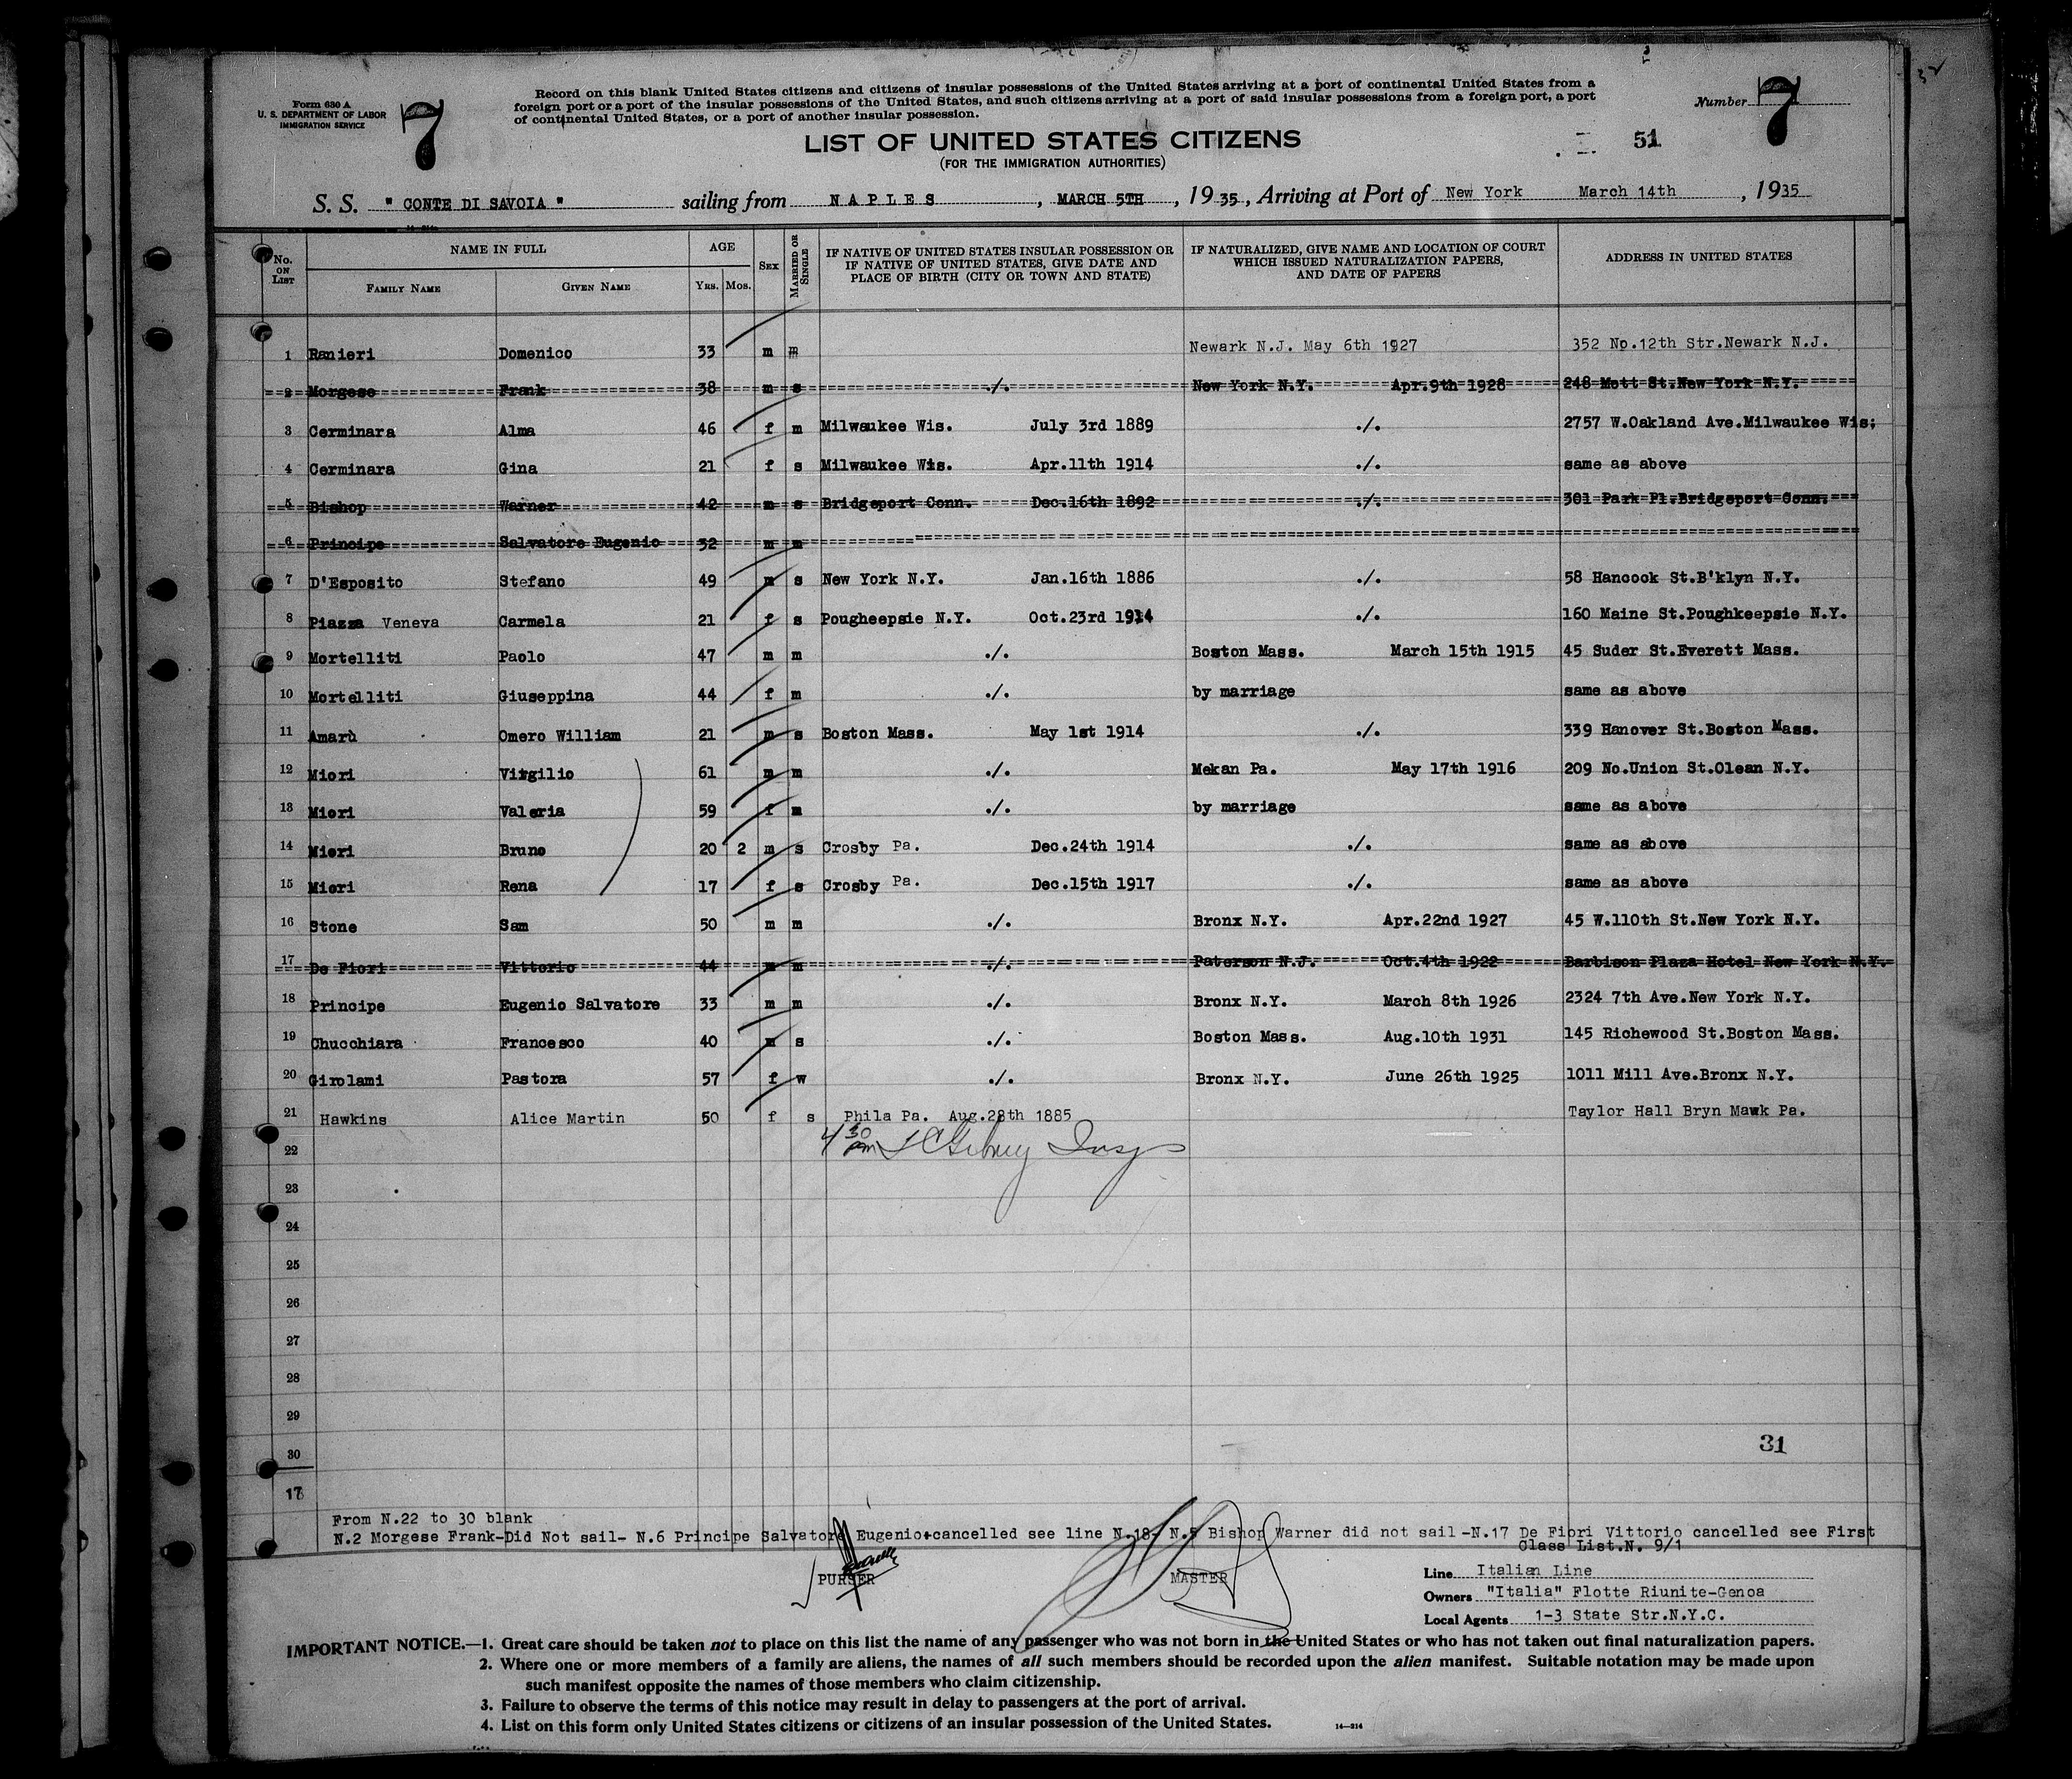 Form 630 A
U. S. DEPARTMENT OF LABOR
IMMIGRATION SERVICE
7
Record on this blank United States citizens and citizens of insular possessions of the United States arriving at a port of continental United States from a
foreign port or a port of the insular possessions of the United States, and such citizens arriving at a port of said insular possessions from a foreign port, a port
of continental United States, or a port of another insular possession.
Number 7
LIST OF UNITED STATES CITIZENS
(FOR THE IMMIGRATION AUTHORITIES)
51
S. S. " CONTE DI SAVOIA " sailing from NAPLES , MARCH 5TH , 1935, Arriving at Port of New York March 14th , 1935
No. ON LIST
NAME IN FULL
FAMILY NAME GIVEN NAME
AGE
YRS. MOS.
SEX
MARRIED OR SINGLE
IF NATIVE OF UNITED STATES INSULAR POSSESSION OR
IF NATIVE OF UNITED STATES, GIVE DATE AND
PLACE OF BIRTH (CITY OR TOWN AND STATE)
IF NATURALIZED, GIVE NAME AND LOCATION OF COURT
WHICH ISSUED NATURALIZATION PAPERS,
AND DATE OF PAPERS
ADDRESS IN UNITED STATES
1 Ranieri Domenico 33 m m Newark N.J. May 6th 1927 352 No.12th Str.Newark N.J.
2 Morgese Frank 38 m s ./. New York N.Y. Apr.9th 1928 248 Mott St.New York N.Y.
3 Cerminara Alma 46 f m Milwaukee Wis. July 3rd 1889 ./. 2757 W.Oakland Ave.Milwaukee Wis;
4 Cerminara Gina 21 f s Milwaukee Wis. Apr.11th 1914 ./. same as above
5 Bishop Warner 42 m s Bridgeport Conn. Dec.16th 1892 ./. 301 Park Pl.Bridgeport Conn.
6 Principe Salvatore Eugenio 32 m m
7 D'Esposito Stefano 49 m s New York N.Y. Jan.16th 1886 ./. 58 Hancock St.B'klyn N.Y.
8 Piazza Veneva Carmela 21 f s Pougheepsie N.Y. Oct.23rd 1914 ./. 160 Maine St.Poughkeepsie N.Y.
9 Mortelliti Paolo 47 m m ./. Boston Mass. March 15th 1915 45 Suder St.Everett Mass.
10 Mortelliti Giuseppina 44 f m ./. by marriage same as above
11 Amarù Omero William 21 m s Boston Mass. May 1st 1914 ./. 339 Hanover St.Boston Mass.
12 Miori Virgilio 61 m m ./. Mekan Pa. May 17th 1916 209 No.Union St.Olean N.Y.
13 Miori Valeria 59 f m ./. by marriage same as above
14 Miori Bruno 20 2 m s Crosby Pa. Dec.24th 1914 ./. same as above
15 Miori Rena 17 f s Crosby Pa. Dec.15th 1917 ./. same as above
16 Stone Sam 50 m m ./. Bronx N.Y. Apr.22nd 1927 45 W.110th St.New York N.Y.
17 De Fiori Vittorio 44 m m ./. Paterson N.J. Oct.4th 1922 Barbison Plaza Hotel New York N.Y.
18 Principe Eugenio Salvatore 33 m m ./. Bronx N.Y. March 8th 1926 2324 7th Ave.New York N.Y.
19 Chucchiara Francesco 40 m s ./. Boston Mass. Aug.10th 1931 145 Richewood St.Boston Mass.
20 Girolami Pastora 57 f w ./. Bronx N.Y. June 26th 1925 1011 Mill Ave.Bronx N.Y.
21 Hawkins Alice Martin 50 f s Phila Pa. Aug.28th 1885 Taylor Hall Bryn Mawk Pa.
22 4 30 pm Insp
23
24
25
26
27
28
29
30
31
17
From N.22 to 30 blank
N.2 Morgese Frank-Did Not sail- N.6 Principe Salvatore Eugenio+cancelled see line N.18- N.5 Bishop Warner did not sail -N.17 De Fiori Vittorio cancelled see First
Class List.N. 9/1
PURSER
MASTER
Line Italian Line
Owners "Italia" Flotte Riunite-Genoa
Local Agents 1-3 State Str.N.Y.C.
IMPORTANT NOTICE.—1. Great care should be taken not to place on this list the name of any passenger who was not born in the United States or who has not taken out final naturalization papers.
2. Where one or more members of a family are aliens, the names of all such members should be recorded upon the alien manifest. Suitable notation may be made upon
such manifest opposite the names of those members who claim citizenship.
3. Failure to observe the terms of this notice may result in delay to passengers at the port of arrival.
4. List on this form only United States citizens or citizens of an insular possession of the United States.
14—214